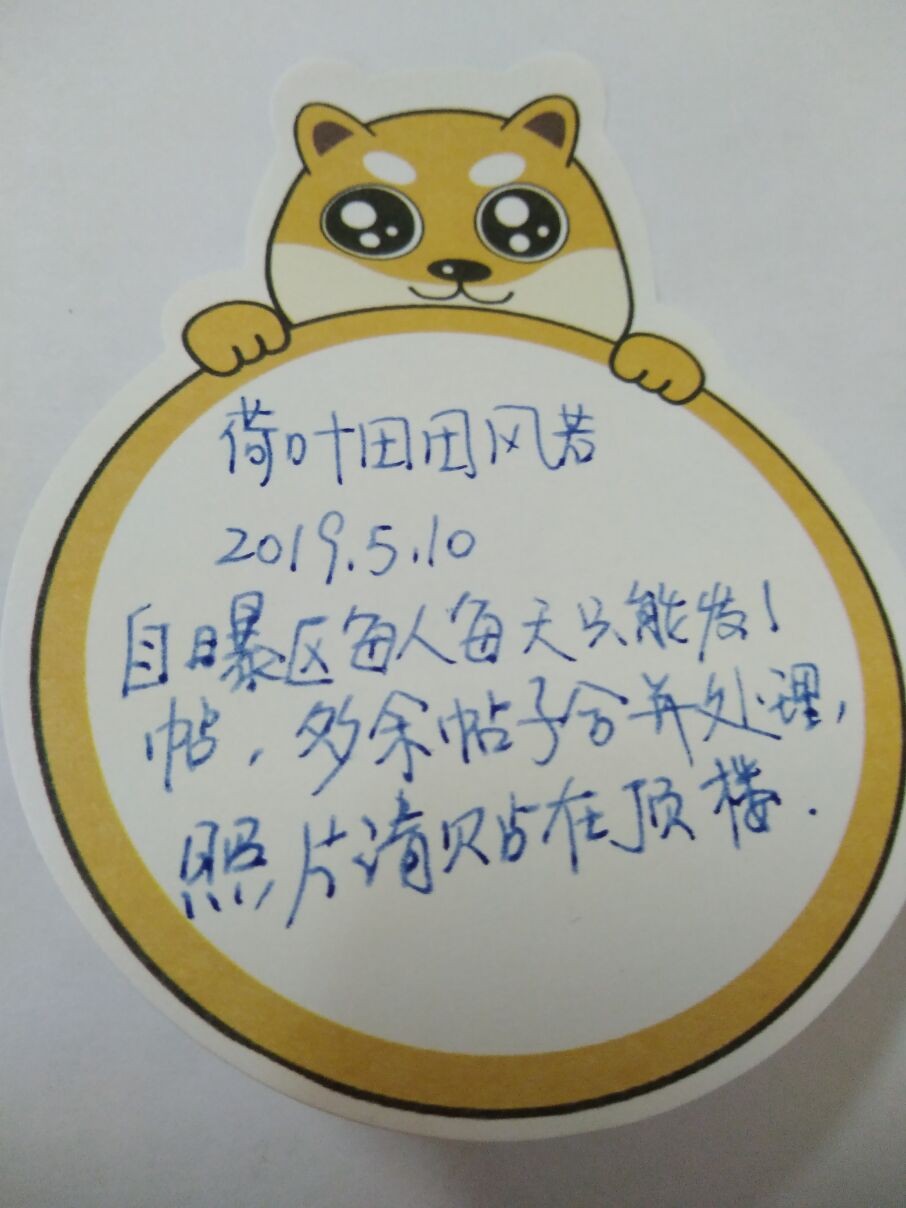 荷叶田田风若
2019.5.10
自曝区每人每天只能发1
帖，多余帖子合并处理，
照片请贴在顶楼.